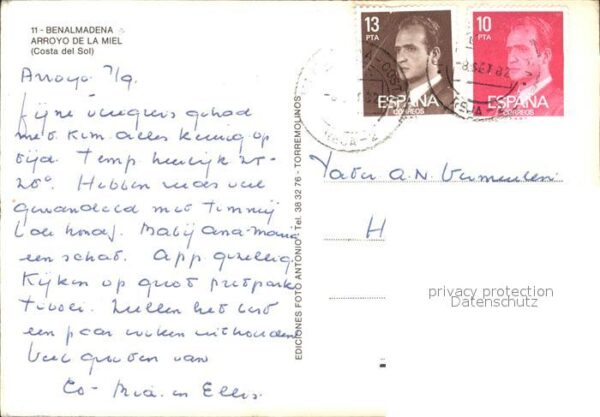 11 - BENALMADENA
ARROYO DE LA MIEL
(Costa del Sol)
13
PTA
ESPAÑA
CORREOS
10
PTA
ESPAÑA
CORREOS
-8.SET.82
Arroyo 7/9.
Fijne vliegreis gehad
met Kim alles keurig op
tijd. Temp heerlijk 25-
28°. Hebben reeds veel
gewandeld met Timmy
(de hond). Baby Ana-Maria
een schat. App gezellig.
Kijken op groot pretpark
Tivoli. Zullen het best
een paar weken uithouden
Veel groeten van
Co - Mia en Ellis.
EDICIONES FOTO ANTONIO. Tel. 38 32 76 - TORREMOLINOS
A.N. Vermeulen
H
privacy protection
Datenschutz